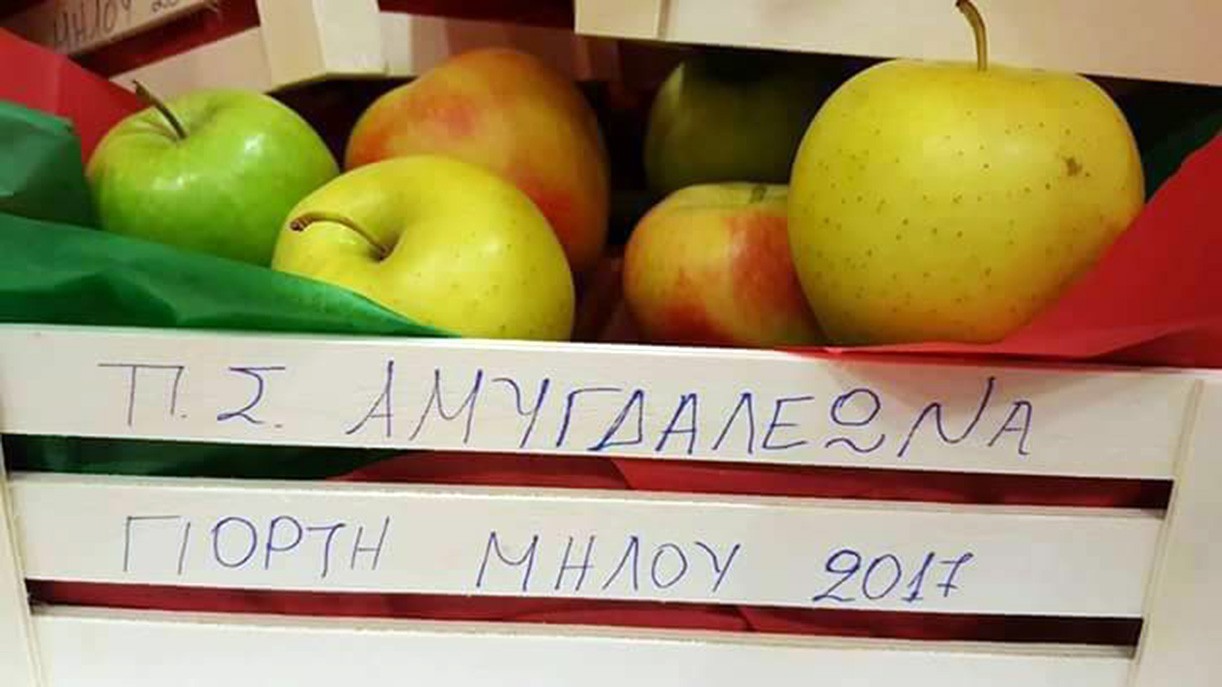 ΜΗΛΟΥ
Π.Σ. ΑΜΥΓΔΑΛΕΩΝΑ
ΓΙΟΡΤΗ ΜΗΛΟΥ 2017